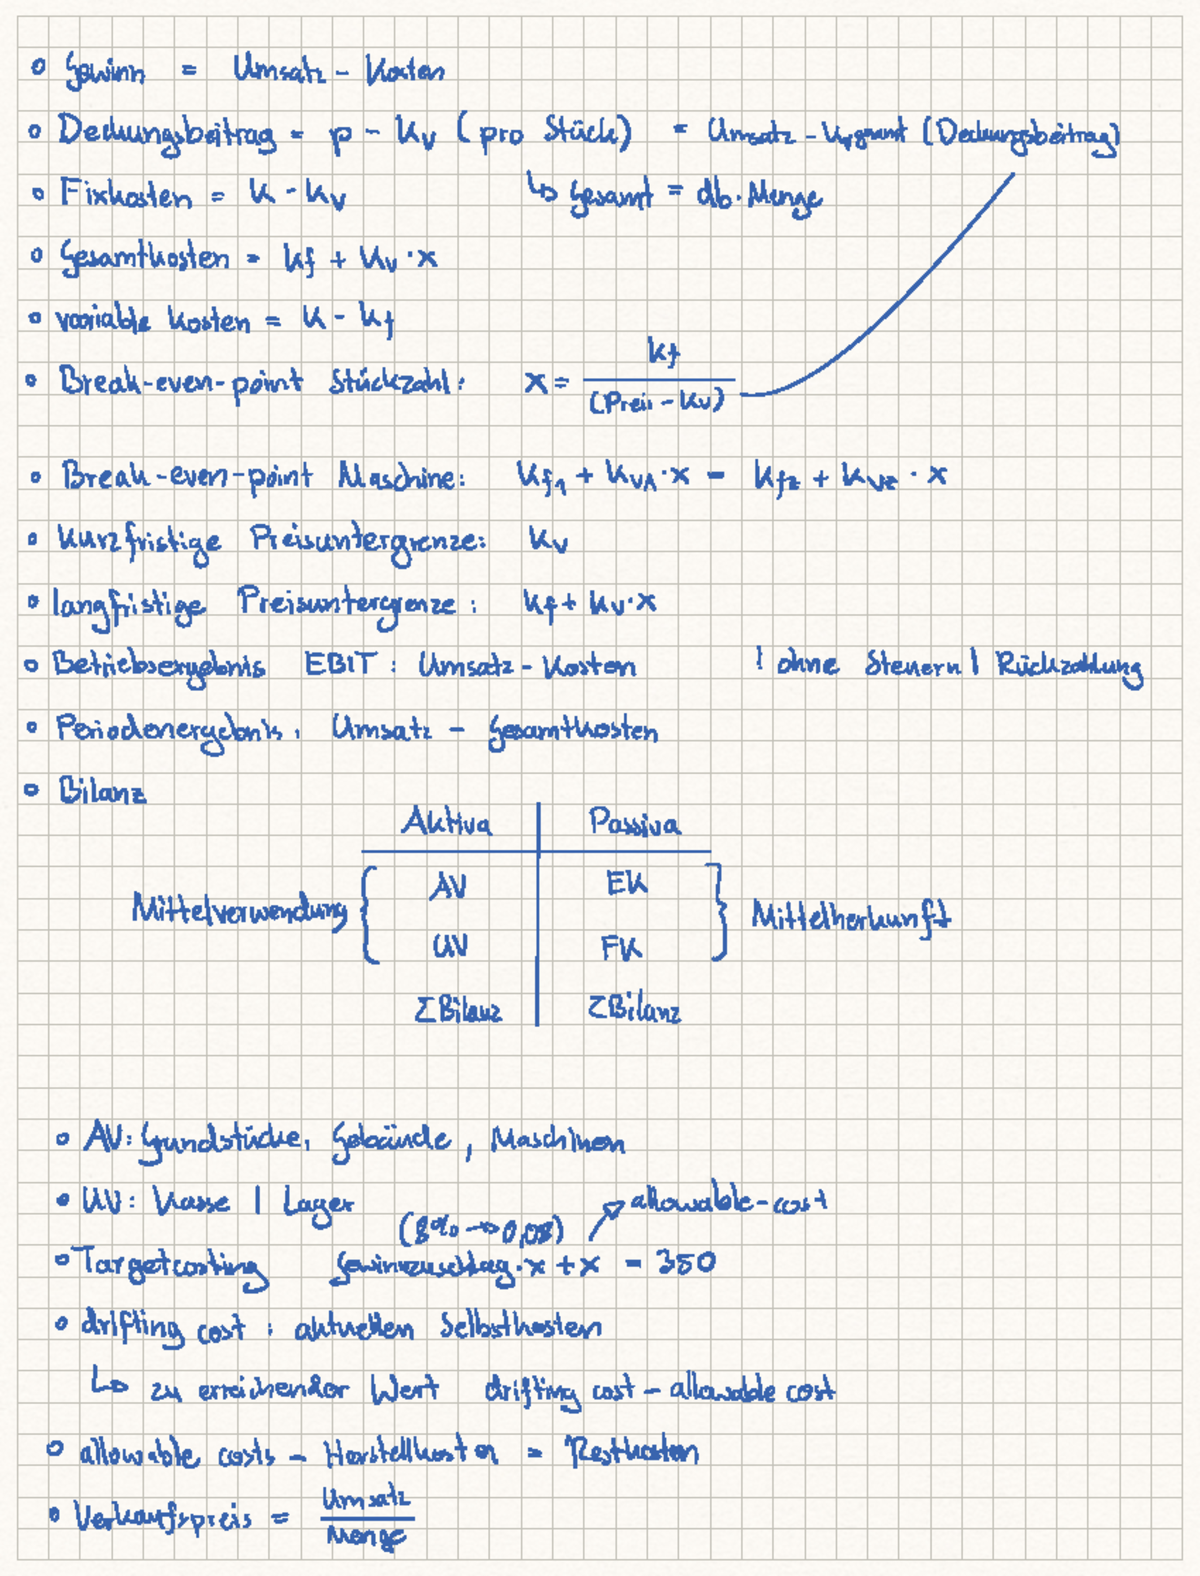 • Gewinn = Umsatz - Kosten
• Deckungsbeitrag = p - kv (pro Stück) = Umsatz - Kvgesamt (Deckungsbeitrag)
• Fixkosten = K - kv ↳ Gesamt = db · Menge
• Gesamtkosten = kf + kv · x
• variable Kosten = K - kf
• Break-even-point Stückzahl: x = kf / (Preis - kv)
• Break-even-point Maschine: Kf1 + kv1 · x = kf2 + kv2 · x
• kurzfristige Preisuntergrenze: kv
• langfristige Preisuntergrenze: kf + kv · x
• Betriebsergebnis EBIT: Umsatz - Kosten ! ohne Steuern | Rückzahlung
• Periodenergebnis: Umsatz - Gesamtkosten
• Bilanz
Aktiva | Passiva
Mittelverwendung { AV | EK } Mittelherkunft
UV | FK
ΣBilanz | ΣBilanz
• AV: Grundstücke, Gebäude, Maschinen
• UV: Kasse | Lager
(8% → 0,08) ↗ allowable-cost
• Targetcosting Gewinnzuschlag · x + x = 350
• drifting cost: aktuellen Selbstkosten
↳ zu erreichender Wert drifting cost - allowable cost
• allowable costs - Herstellkosten = Restkosten
• Verkaufspreis = Umsatz / Menge